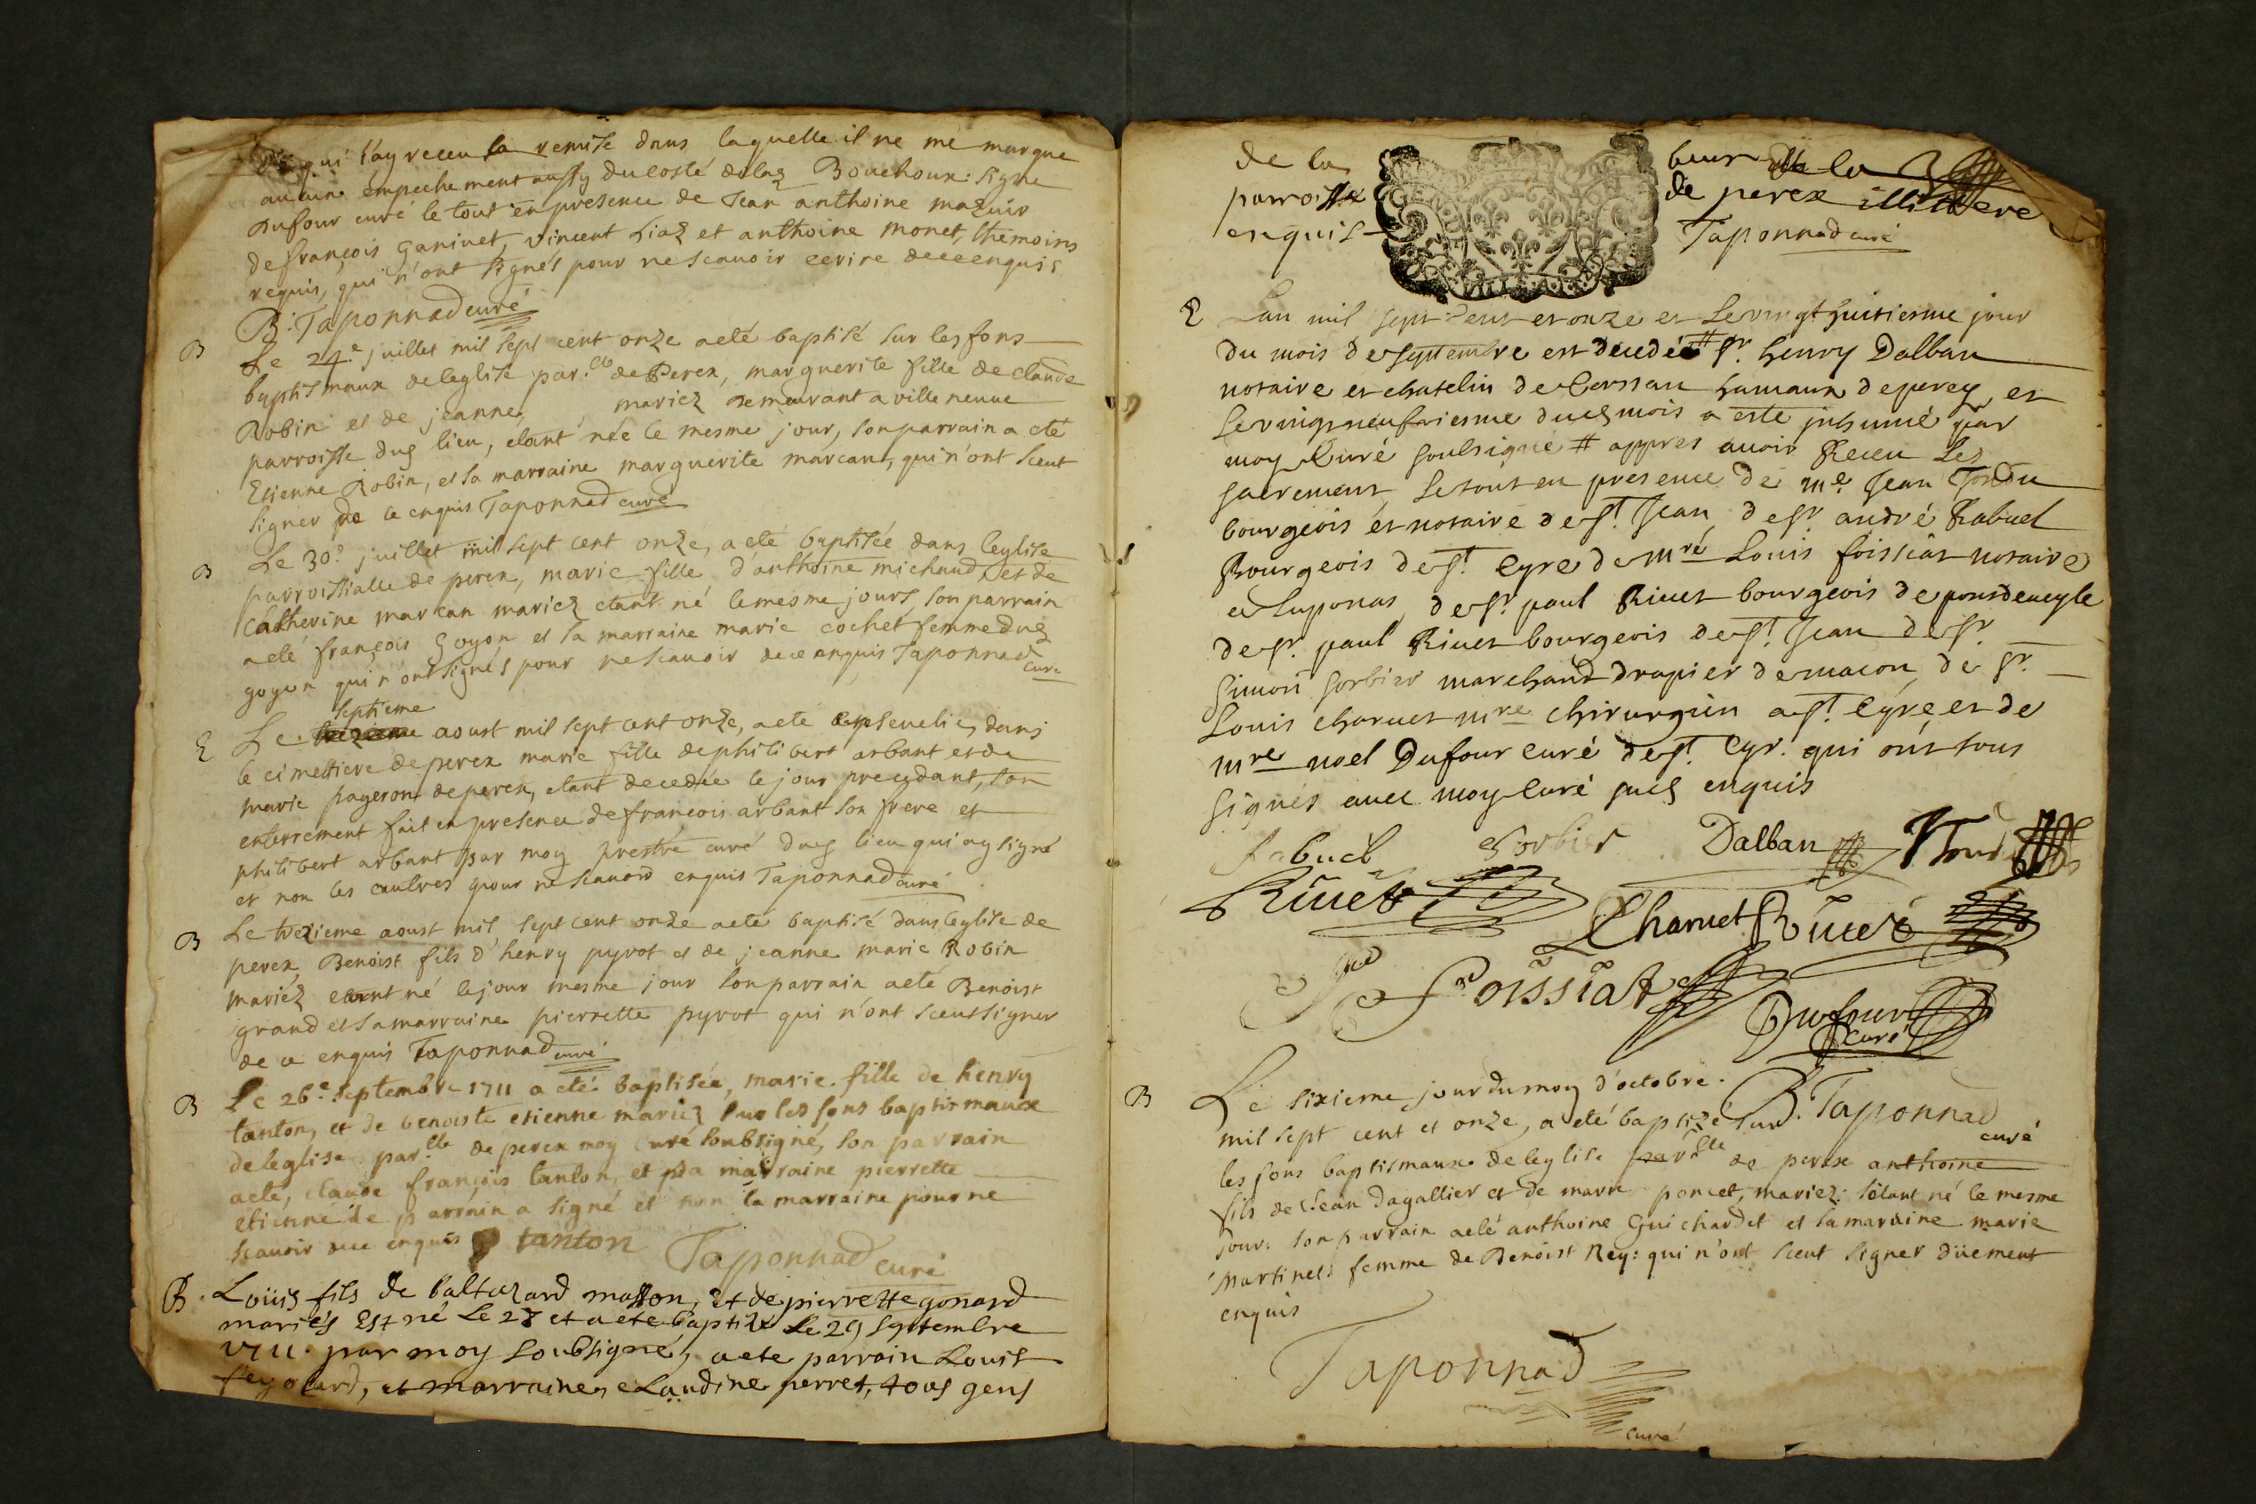 qui l'ay receu la remise dans laquelle il ne me marque
aucun empechement aussy du costé de lad Bouchoux: signé
Dufour curé le tout en presence de Jean anthoine mazuir
de françois Ganivet, vincent Liaz et anthoine monet, themoins
requis, qui n'ont signés pour ne scavoir ecrire de ce enquis
B: Taponnad curé
B Le 24e juillet mil sept cent onze a eté baptisé sur les fons
baptismaux de leglise par.lle de Perex, marguerite fille de claude
Robin et de jeanne mariez demeurant a ville neuve
parroisse dud lieu, etant née le mesme jour, son parrain a eté
Etienne Robin, et sa marraine marguerite marcant, qui n'ont sceut
signer de ce enquis Taponnad curé
B Le 30e juillet mil sept cent onze, a eté baptisée dans leglise
parroissialle de perex, marie fille d'anthoine michaud, et de
Catherine marcan mariez etant né le mesme jours, son parrain
a eté françois goyon et sa marraine marie cochet femme dud
goyon qui n'ont signés pour ne scavoir de ce enquis Taponnad
curé
septieme
E Le aoust mil sept cent onze, a eté ensevelie dans
le cimettiere de perex marie fille de philibert arbant et de
marie pageron de perex, etant decedée le jour precedant, son
enterrement fait en presence de francois arbant son frere et
philibert arbant par moy prestre curé dud lieu qui ay signé
et non les autres pour ne scavoir enquis Taponnad curé
B Le trezieme aoust mil sept cent onze a eté baptisé dans leglise de
perex Benoist fils d'henry pyrot et de jeanne marie Robin
mariéz etant né le jour mesme jour son parrain a eté Benoist
grand et sa marraine pierrette pyrot qui n'ont sceut signer
de ce enquis Taponnad curé
B Le 26e septembre 1711 a eté baptisée, marie fille de henry
tanton, et de benoiste etienne mariez sur les fons baptismaux
de leglise par.lle de perex moy curé soubsigné, son parrain
a eté, claude françois tanton, et sa marraine pierrette
etienne le parrain a signé et non la marraine pour ne
scavoir de ce enquis tanton Taponnad curé
B. Loüis fils de baltazard masson, et de pierrette gonard
mariés Est né Le 28 et a eté baptizé Le 29 septembre
1711. par moy soubsigné, a eté parrain Louis
feyolard, et marraine, claudine perret, tous gens
de la
parroisse
enquis
de perex illitere
Taponnad curé
E Lan mil sept cent et onze et le vingt huitiesme jour
du mois de septembre est decedé # sr. henry Dalban
notaire et chatelin de Corssan hamaux de perex, et
le vingt neufviesme dud mois a esté inhumé par
moy Curé soubsigné # appres avoir Receu Les
sacrement, le tout en presence de me. Jean Tondu
bourgeois et notaire de st. Jean, de sr. andré Rabuel
Bourgeois de st. Cyre de mre Louis foissiat notaire
a Luponas, de sr. paul Rivet bourgeois de pondeveyle
de sr. paul Rivet bourgeois de st. Jean de sr.
Simon Sorbier marchand drapier de macon, de sr.
Louis charvet mre chirurgien a st. Cyre, et de
mre noel Dufour curé de st. Cyr. qui ont sous
signés avec moy curé sud enquis
Rabuel Sorbier Dalban Tondu
Rivet Charvet Rivet
Foissiat Dufour
curé
B Le sixieme jour du moy d'octobre. B. Taponnad
curé
mil sept cent et onze, a eté baptizé sur
les fons baptismaux de leglise par.lle de perex anthoine
fils de Jean dagallier et de marie poncet, mariez: etant né le mesme
jour: son parrain a eté anthoine Guichardet et sa marraine marie
Martinet: femme de Benoist Rey: qui n'ont sceut signer düement
enquis
Taponnad
curé